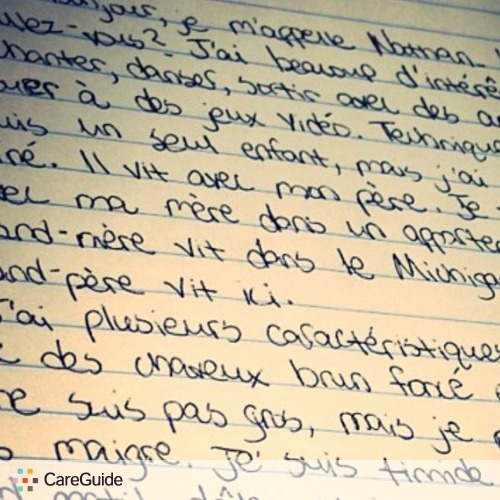 njour, je m'appelle Nathan.
lez-vous? J'ai beaucoup d'intérê
hanter, danser, sortir avec des a
ouer à des jeux vidéo. Technique
uis un seul enfant, mais j'ai
né. Il vit avec mon père. Je
vec ma mère dans un apparte
and-mère vit dans le Michiga
and-père vit ici.
J'ai plusieurs caractéristiques
des chaveux brun foncé
ne suis pas gros, mais je
maigre. Je suis timide.
CareGuide